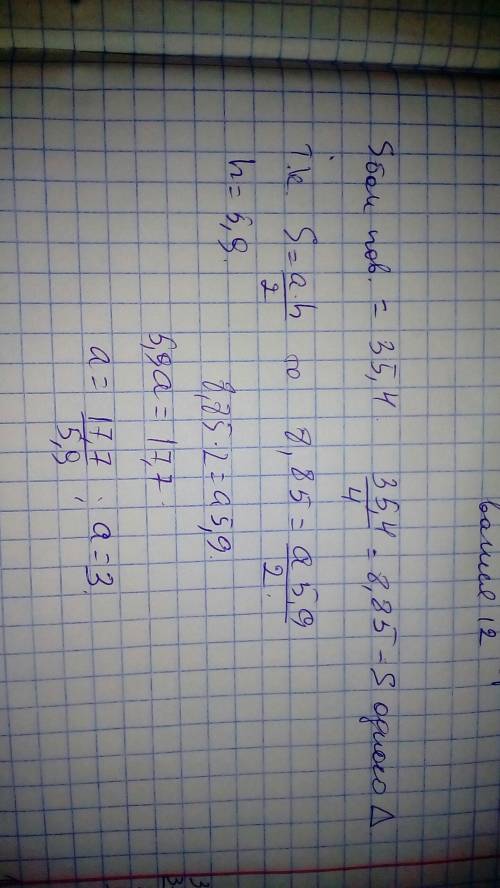 Sбок пов. = 35,4. 35,4/4 = 8,85 - S одного Δ
т.к. S = a·h/2 то 8,85 = a 5,9/2.
h = 5,9. 8,85·2 = a5,9.
5,9a = 17,7.
a = 17,7/5,9 ; a = 3.